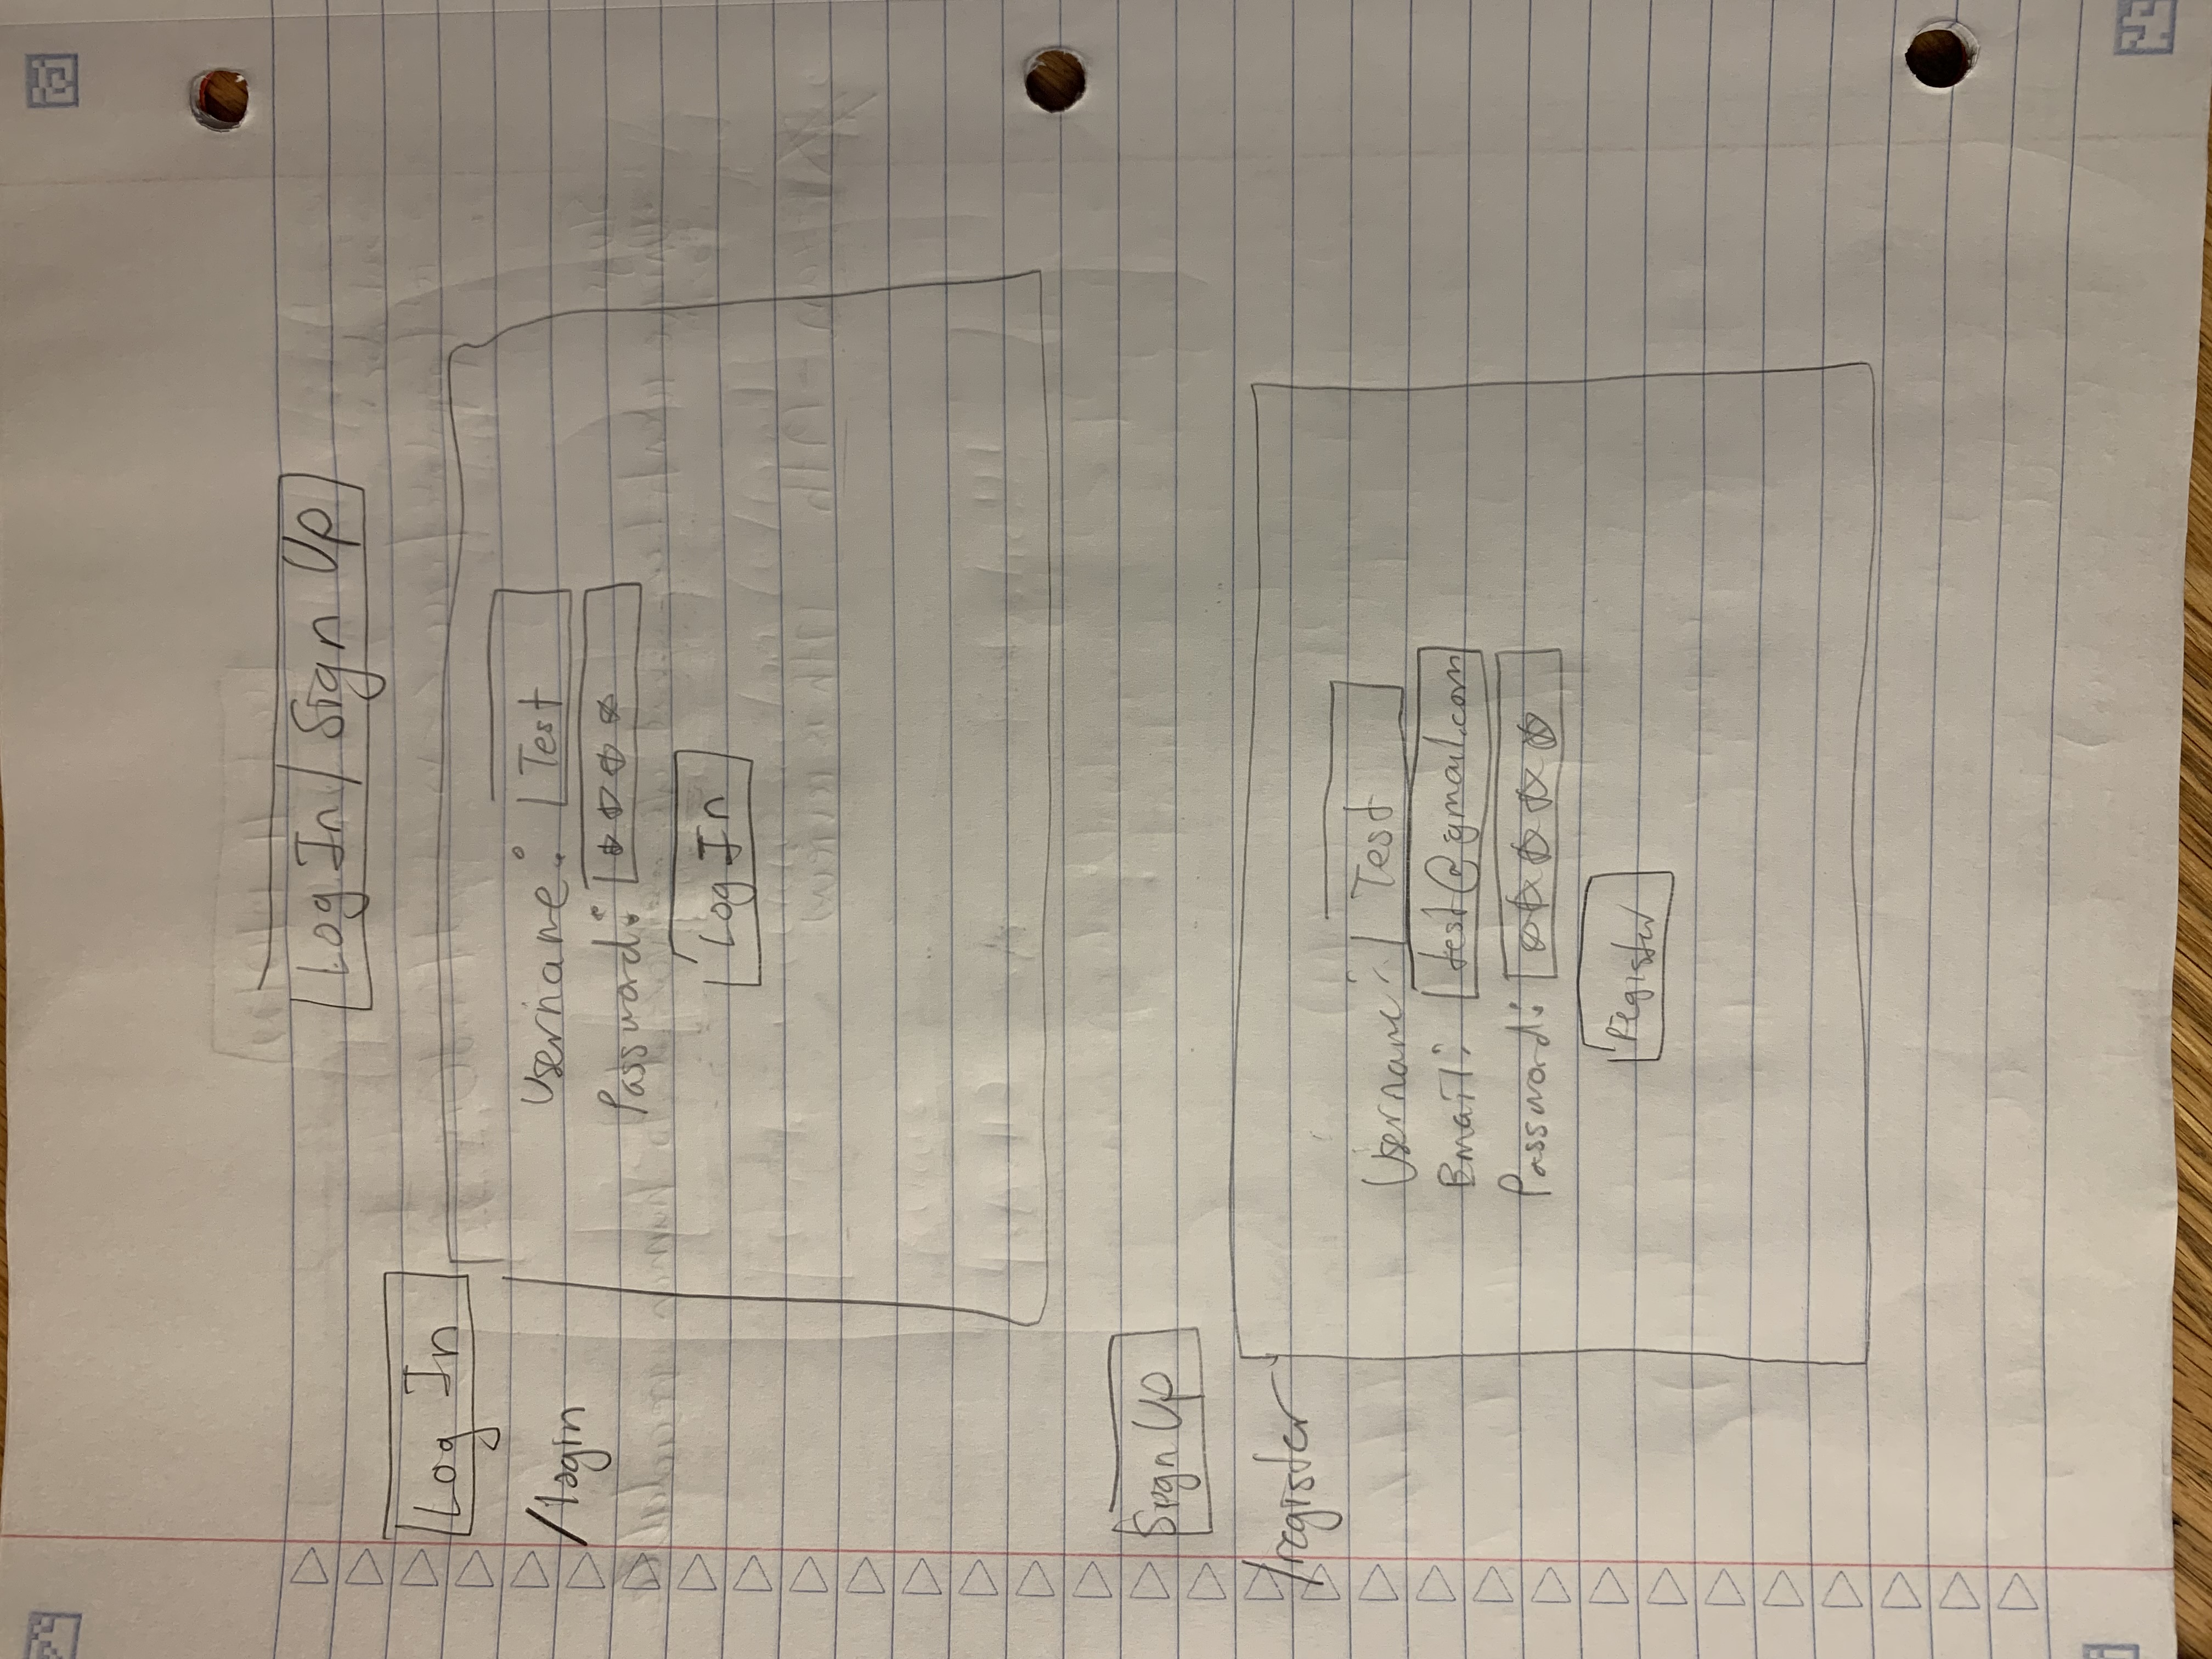 Log In / Sign Up
Log In
/login
Username: Test
Password: ****
Log In
Sign Up
/register
Username: Test
Email: test@gmail.com
Password: *****
register